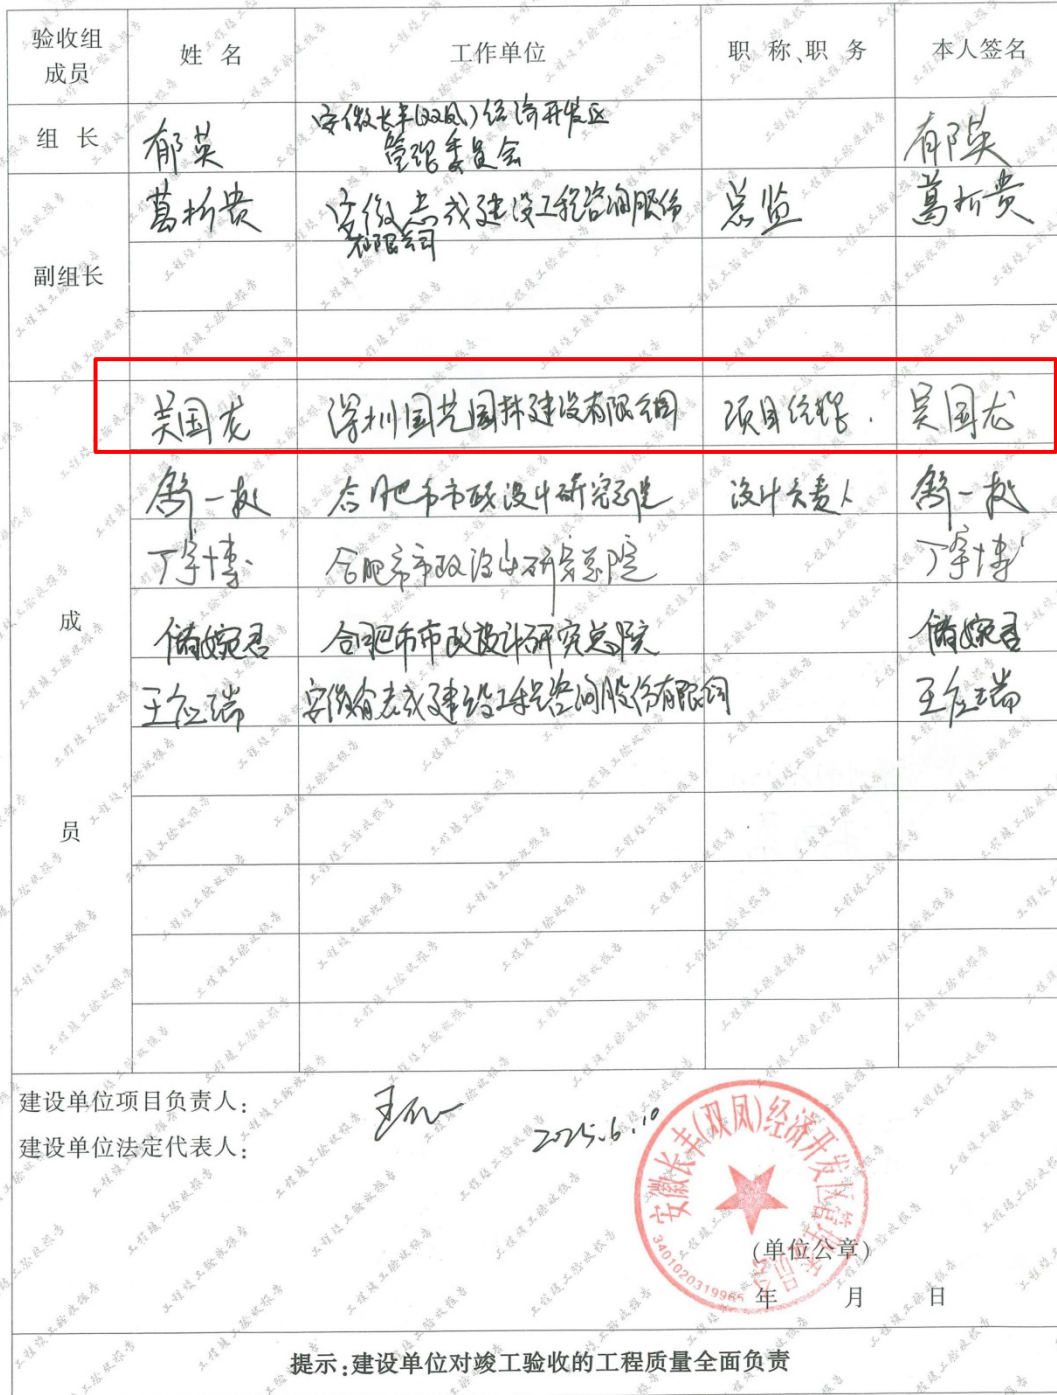 验收组成员 姓 名 工作单位 职 称、职 务 本人签名
组 长 郁英 安徽长丰(双凤)经济开发区管理委员会 郁英
副组长 葛析贵 安徽志成建设工程咨询股份有限公司 总监 葛析贵
成员
吴国龙 深圳国艺园林建设有限公司 项目经理. 吴国龙
合肥市市政设计研究总院 设计负责人
丁宇博 合肥市市政设计研究总院 丁宇博
储婉君 合肥市市政设计研究总院 储婉君
王应瑞 安徽省志成建设工程咨询股份有限公司 王应瑞
建设单位项目负责人:
建设单位法定代表人:
2025.6.10
安徽长丰(双凤)经济开发区管理委员会
3401020319965
(单位公章)
年 月 日
提示:建设单位对竣工验收的工程质量全面负责
工程竣工验收报告